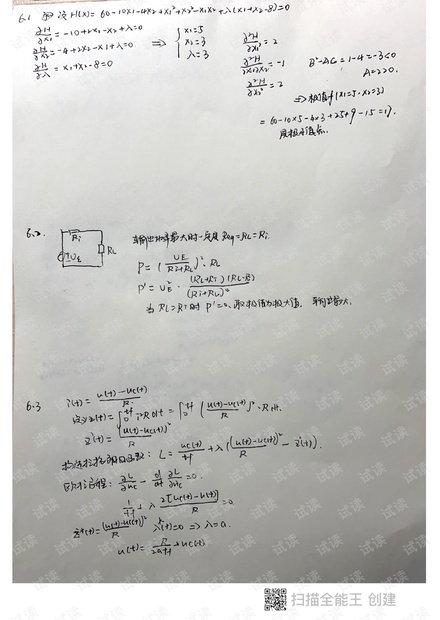 6.1 解: 设 H(x) = 60-10x1-4x2+x1²+x2²-x1x2+λ(x1+x2-8)=0
∂H/∂x1 = -10+2x1-x2+λ=0
∂H/∂x2 = -4+2x2-x1+λ=0
∂H/∂λ = x1+x2-8=0
⇒ { x1=5
x2=3
λ=3
∂²H/∂x1² = 2
∂²H/∂x1∂x2 = -1
∂²H/∂x2² = 2
B²-AC=1-4=-3<0
A=2>0.
⇒ 极值 f(x1=5, x2=3)
= 60-10×5-4×3+25+9-15=17.
6.2.
Ri
UE
RL
RL=Ri.
P = (UE/(Ri+RL))²·RL
P' = UE²·(RL+Ri)(RL-Ri)/(Ri+RL)⁴
当 RL=Ri时 P'=0, 取极值为极大值.
6.3
i(t) = (u(t)-uc(t))/R
z(t) = ∫0^tf i²R dt = ∫0^tf ((u(t)-uc(t))/R)²·R dt.
z'(t) = (u(t)-uc(t))²/R
构造拉格朗日函数: L = uc(t)/tf + λ((u(t)-uc(t))²/R - z'(t)).
欧拉方程: ∂L/∂uc - d/dt ∂L/∂uc = 0.
1/tf + λ 2[uc(t)-u(t)]/R = 0
z'(t) = (u(t)-uc(t))²/R λ(t)=0 ⇒ λ=a.
u(t) = R/2atf + uc(t)
试读
扫描全能王 创建